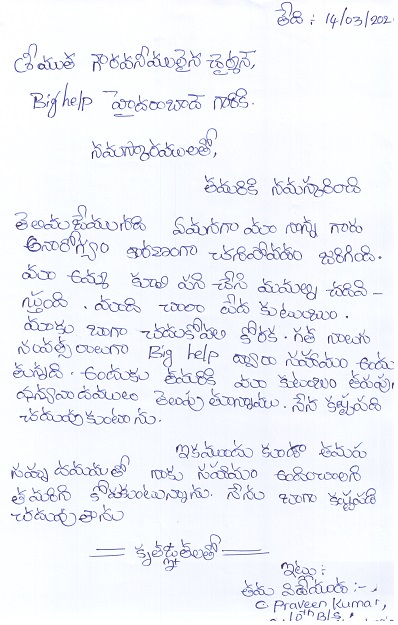 తేది : 14/03/202
శ్రీయుత గౌరవనీయులైన చైర్మన్,
Big help హైదరాబాద్ గారికి.
నమస్కారములతో,
తమరికి నమస్కరించి
తెలియజేయునది ఏమనగా మా నాన్న గారు
అనారోగ్యం కారణంగా చనిపోవడం జరిగింది.
మా అమ్మ కూలి పని చేసి మమల్ని చదివి-
స్తుంది. మాది చాలా పేద కుటుంబం.
మాకు బాగా చదుకోవాలని కోరిక. గత నాలుగు
సంవత్సరాలుగా Big help ద్వారా సహాయం అందు
తున్నది. అందుకు తమరికి మా కుటుంబం తరుపున
ధన్యవాదములు తెలుపుతున్నాము. నేను కష్టపడి
చదువుకుంటాను.
ఇకముందు కూడా తమరు
సహృదయముతో నాకు సహాయం అందించాలని
తమరిని కోరుకుంటున్నాను. నేను బాగా కష్టపడి
చదువుతాను
కృతజ్ఞతలతో
ఇట్లు :
తమ విధేయుడు :-,
C Praveen Kumar,
10th B/S,